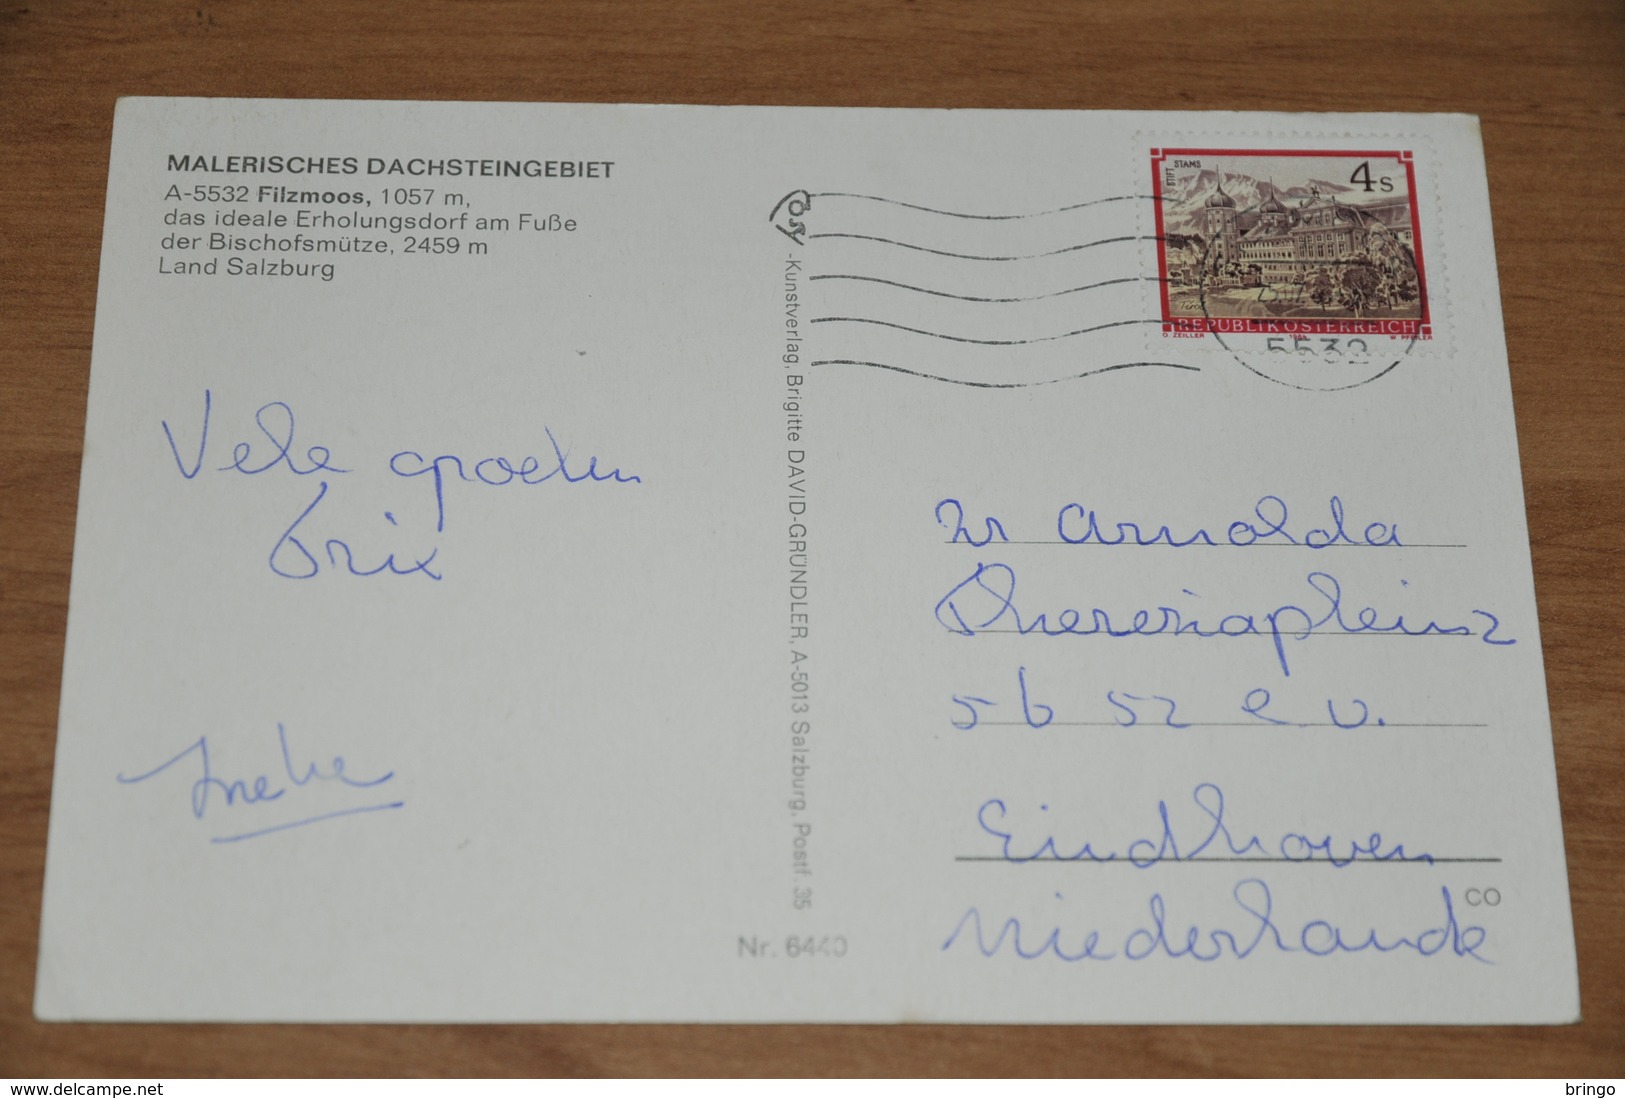 MALERISCHES DACHSTEINGEBIET
A-5532 Filzmoos, 1057 m,
das ideale Erholungsdorf am Fuße
der Bischofsmütze, 2459 m
Land Salzburg
Cosy
-Kunstverlag, Brigitte DAVID-GRÜNDLER, A-5013 Salzburg, Postf. 35
Nr. 6440
STIFT STAMS
4 S
Tirol
REPUBLIK ÖSTERREICH
O. ZEILLER 1984 W. PFEILER
5532
Vele groeten
Trix
Ineke
Zr Arnolda
Theresiaplein 2
5652 e v.
Eindhoven
CO
Niederlande
delcampe.net
bringo